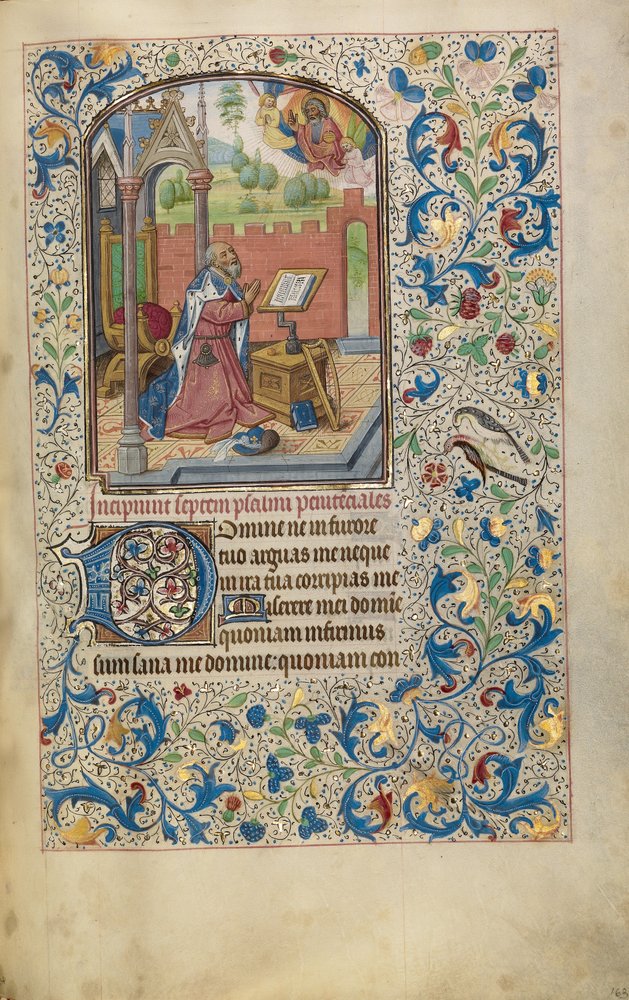 Incipiunt septem psalmi penite(n)ciales
Domine ne in furore
tuo arguas me neque
in ira tua corripias me
Miserere mei domi(n)e
quoniam infirmus
sum sana me domine: quoniam con
162